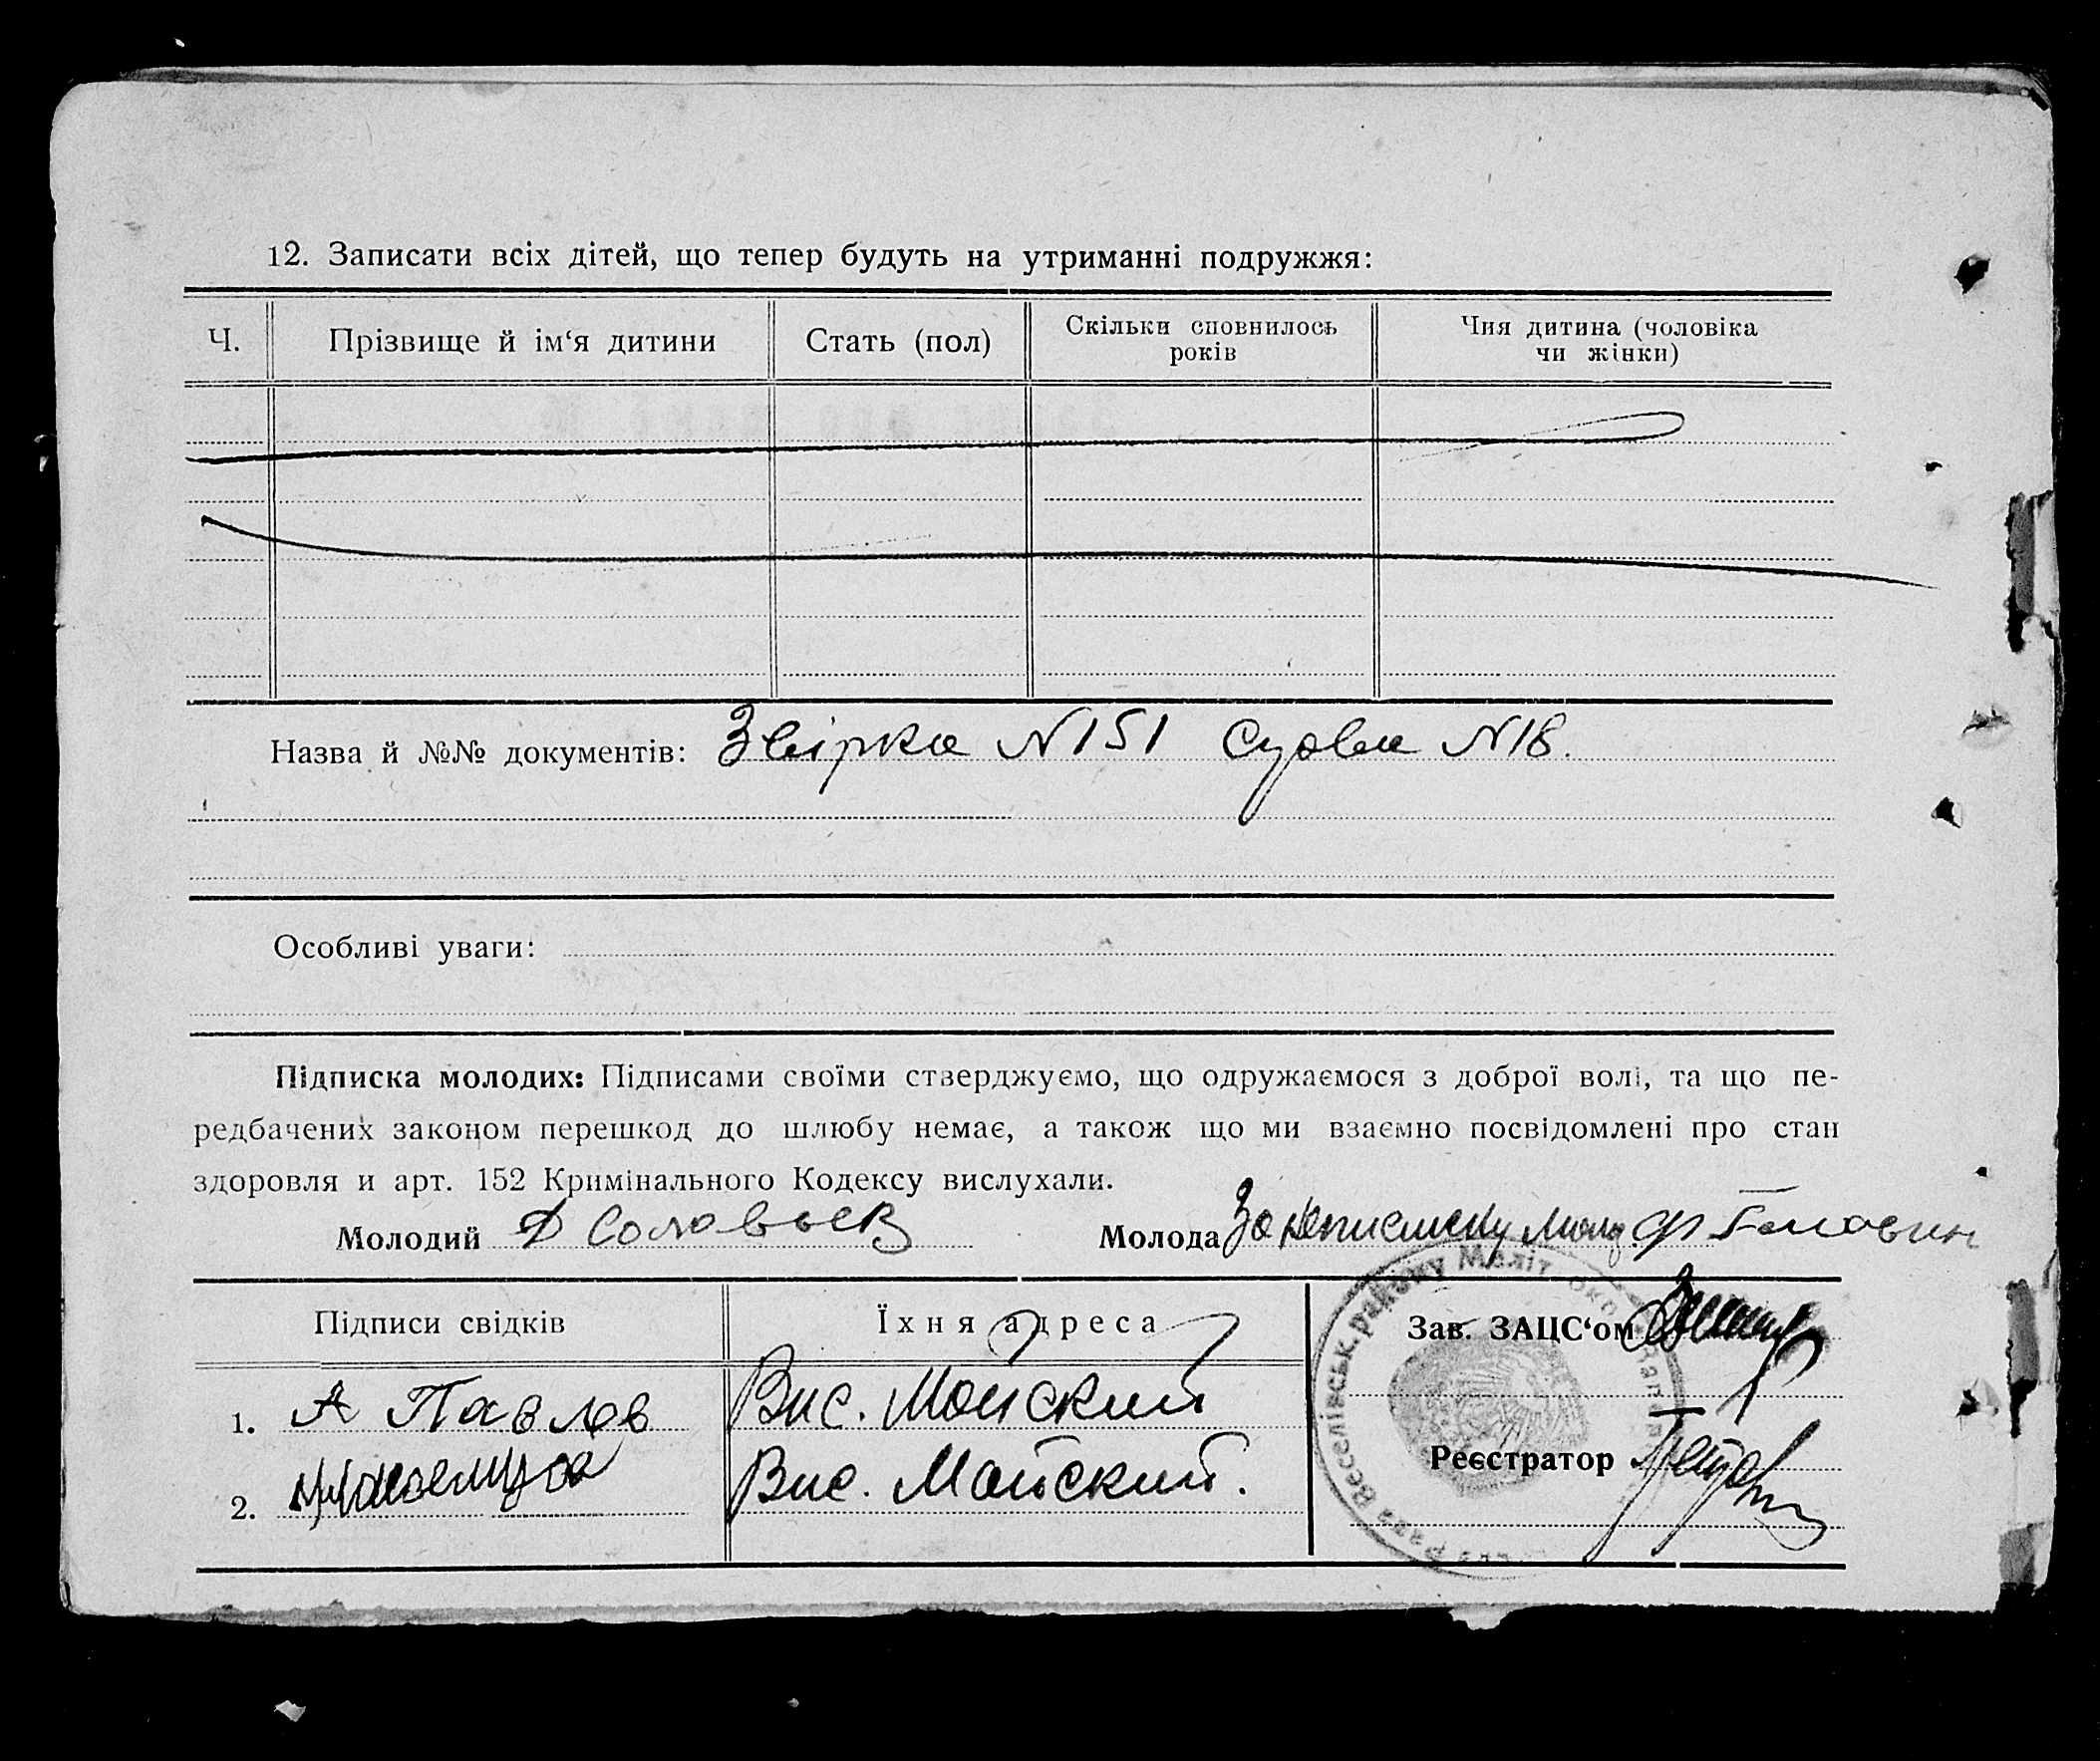 12. Записати всіх дітей, що тепер будуть на утриманні подружжя:
Ч. Прізвище й ім‘я дитини Стать (пол) Скільки сповнилось років Чия дитина (чоловіка чи жінки)
Назва й №№ документів: Звірка N151 N18.
Особливі уваги:
Підписка молодих: Підписами своїми стверджуємо, що одружаємося з доброї волі, та що пе-
редбачених законом перешкод до шлюбу немає, а також що ми взаємно посвідомлені про стан
здоровля и арт. 152 Кримінального Кодексу вислухали.
Молодий Д Соловьев Молода За
Підписи свідків Їхня адреса Зав. ЗАЦС‘ом
1. А Павлов Вис. Майский
Реєстратор
2. Вис. Майский.